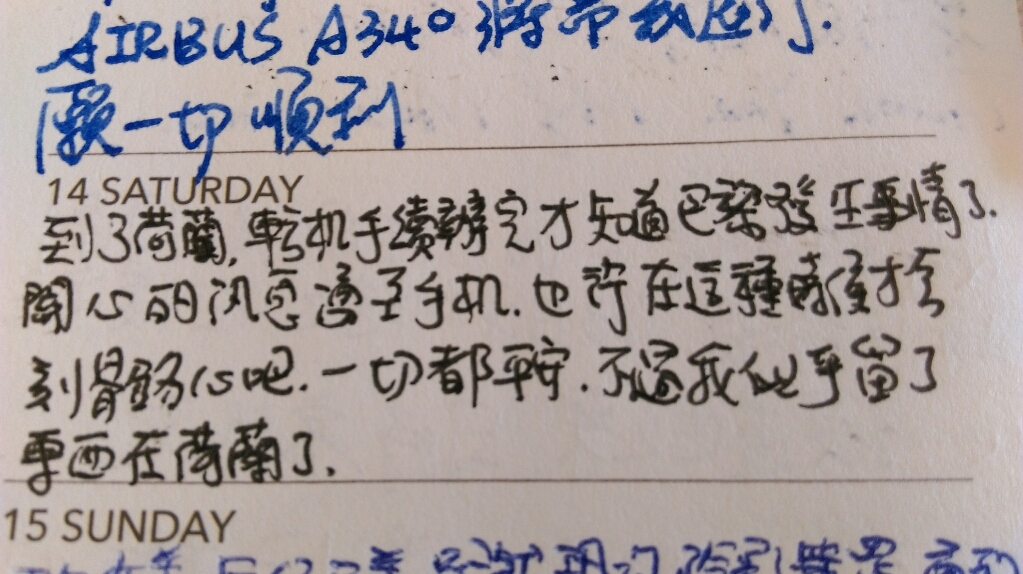 AIRBUS A340 將帶我遠行.
願一切順利
14 SATURDAY
到了荷蘭, 轉机手續辦完才知道巴黎發生事情了.
関心的訊息湧至手机. 也許在這種時候才会
刻骨銘心吧. 一切都平安. 不過我似乎留了
東西在荷蘭了.
15 SUNDAY